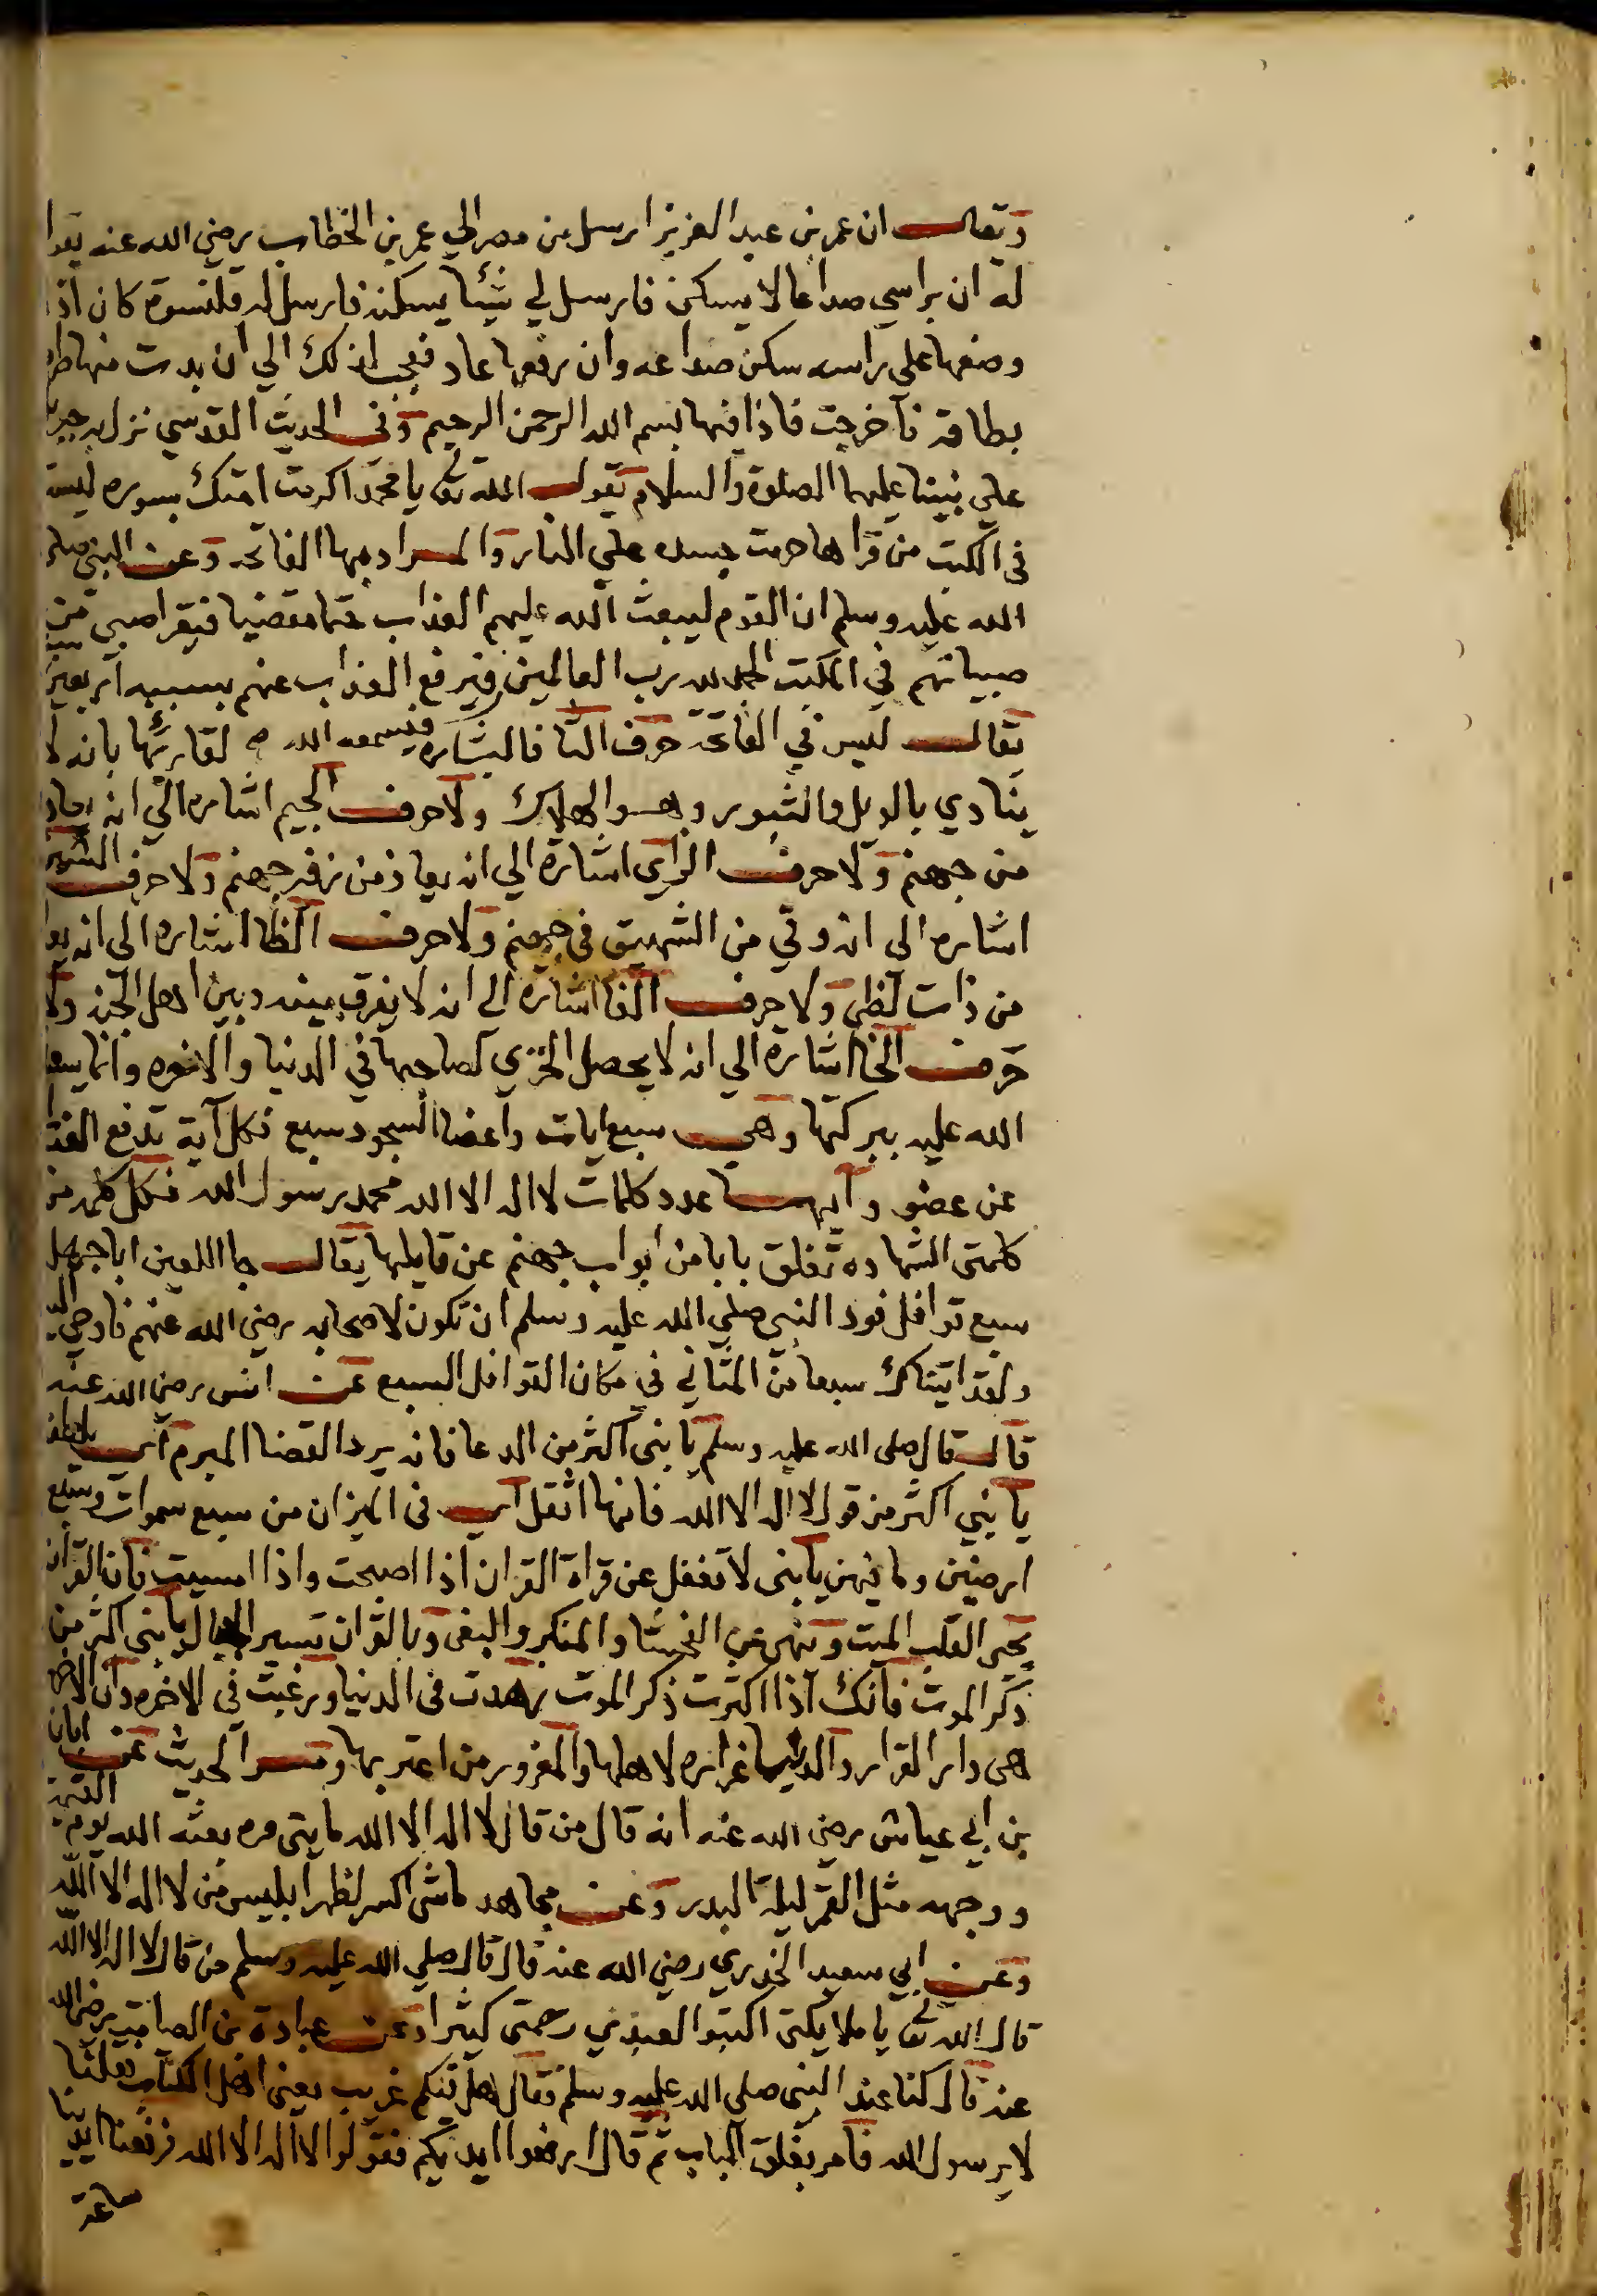 ويقال ان عمر بن عبد العزيز ارسل من مصر الي عمر بن الخطاب رضي الله عنه يقول
له ان براسي صداعا لا يسكن فارسل لي شيئا يسكنه فارسل له قلنسوة كان اذا
وضعها على راسه سكن صداعه وان رفعها عاد فعجب لذلك الي ان بدت منها طرف
بطاقة فآخرجت فاذا فيها بسم الله الرحمن الرحيم وفى الحديث القدسي نزل به جبريل
علي نبينا عليهما الصلوة والسلام يقول الله تع يا محمد اكرمت امتك بسوره ليست
فى الكتب من قراها حرمت جسده علي النار والمراد بها الفاتحه وعن النبي صلى
الله عليه وسلم ان القوم ليبعث الله عليهم العذاب حتما مقضيا فيقرا صبي من
صبيانهم في المكتب الحمد لله رب العالمين فيرفع العذاب عنهم بسببه اربعين
يقال ليس في الفاتحة حرف الثا فالبشاره فيسمعه الله لقارئها بانه لا
ينادي بالويل والثبور وهو الهلاك ولا حرف الجيم اشاره الي انه يعاذ
من جهنم ولا حرف الزاي اشارة الي انه يعاذ من زفير جهنم ولا حرف الشين
اشاره الى انه وقي من الشهيق فى جهنم ولا حرف الظا اشاره الى انه يعا
من ذات لظى ولا حرف الفا اشارة الى انه لا يفرق بينه وبين اهل الجنه ولا
حرف الخا اشارة الي انه لا يحصل الخزي لصاحبها في الدنيا والاخره وانما يسعد
الله عليه ببركتها وهي سبع ايات واعضا السجود سبع فكل آية تدفع العذا
عن عضو وآيها عدد كلمات لا اله الا الله محمد رسول الله فكل كلمه من
كلمتى الشهاده تغلق بابا من ابواب جهنم عن قايلها يقال جا اللعين ابا جهل
سبع قوافل فود النبي صلي الله عليه وسلم ان تكون لاصحابه رضي الله عنهم فاوحي اليه
ولقد اتيناك سبعا من المثاني في مكان القوافل السبع عن انس رضي الله عنه
قال قال صلى الله عليه وسلم يا بنى اكثر من الدعا فانه يرد القضا المبرم اى بلطف
يا بني اكثر من قول لا اله الا الله فانها اثقل اى فى الميزان من سبع سموات وسبع
ارضين وما فيهن يا بنى لا تغفل عن قراة القران اذا اصبحت واذا امسيت فان القرآن
يحى القلب الميت وتنهى عن الفحشا والمنكر والبغى وبالقران تسير الجبال يا بنى اكثر من
ذكر الموت فانك اذا اكثرت ذكر الموت زهدت فى الدنيا ورغبت فى الاخره وان الاخره
هى دار القرار والدنيا غراره لاهلها والمغرور من اغتر بها وفسر الحديث عن ابان
بن ابي عياش رضي الله عنه انه قال من قال لا اله الا الله مايتى مره بعثه الله يوم القيمة
ووجهه مثل القمر ليلة البدر وعن مجاهد ما شى اكسر لظهر ابليس من لا اله الا الله
وعن ابي سعيد الخدري رضي الله عنه قال قال صلي الله عليه وسلم من قال لا اله الا الله
قال الله تع يا ملايكتى اكتبوا لعبدي رحمتى كثيرا وعن عبادة بن الصامت رضي الله
عنه قال كنا عند النبى صلى الله عليه وسلم فقال هل فيكم غريب يعنى اهل الكتاب فقلنا
لا يرسول الله فامر بغلق الباب ثم قال ارفعوا ايديكم فقولوا لا اله الا الله فرفعنا ايدينا
ساعة